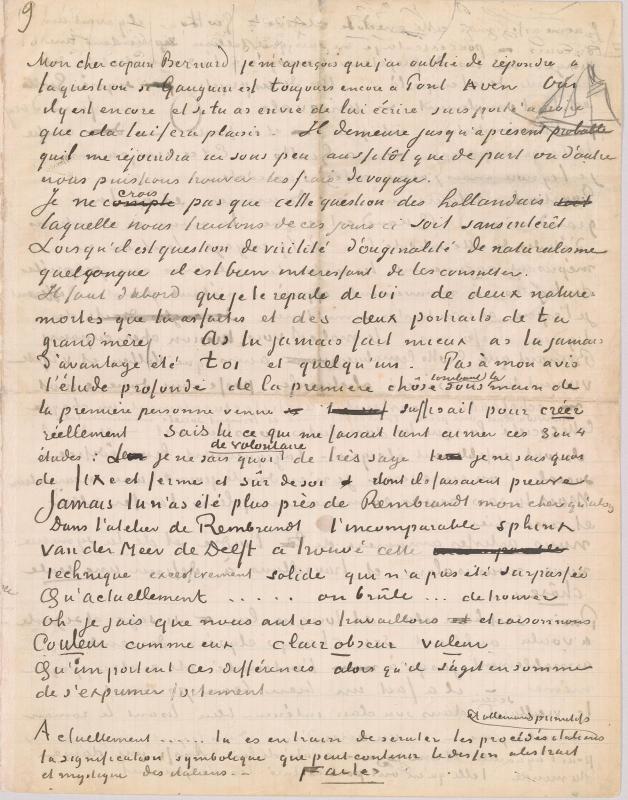 9
Mon cher copain Bernard je m'aperçois que j'ai oublié de répondre à
ta question si Gauguin est toujours encore à Pont Aven Oui
il y est encore et si tu as envie de lui écrire suis porté à croire
que cela lui fera plaisir. Il demeure jusqu'à présent probable
qu'il me rejoindra ici sous peu aussitôt que de part ou d'autre
nous puissions trouver les frais de voyage.
Je ne compte crois pas que cette question des hollandais soit
laquelle nous traitons de ces jours ci soit sans intérêt
Lorsqu'il est question de virilité d'originalité de naturalisme
quelconque il est bien intéressant de les consulter.
Il faut d'abord que je te reparle de toi de deux nature-
mortes que tu as faites et des deux portraits de ta
grand'mère As tu jamais fait mieux as tu jamais
d'avantage été toi et quelqu'un. Pas à mon avis
l'étude profonde de la première chose tombant la sous main de
la première personne venue suffisait pour créer
réellement Sais tu ce qui me faisait tant aimer ces 3 ou 4
études: je ne sais quoi de volontaire de très sage je ne sais quoi
de fixe et ferme et sûr de soi dont ils faisaient preuve
Jamais tu n'as été plus près de Rembrandt mon cher qu'alors
Dans l'atelier de Rembrandt l'incomparable sphinx
van der Meer de Delft a trouvé cette
technique excessivement solide qui n'a pas été surpassée
Qu'actuellement ..... on brûle ... de trouver
Oh je sais que nous autres travaillons et raisonnons
Couleur comme eux clair obscur valeur
Qu'importent ces différences alors qu'il s'agit en somme
de s'exprimer fortement
et allemands primitifs
Actuellement ...... tu es en train de scruter les procédés italiens
la signification symbolique que peut contenir le dessin abstrait
et mystique des italiens..
Faites